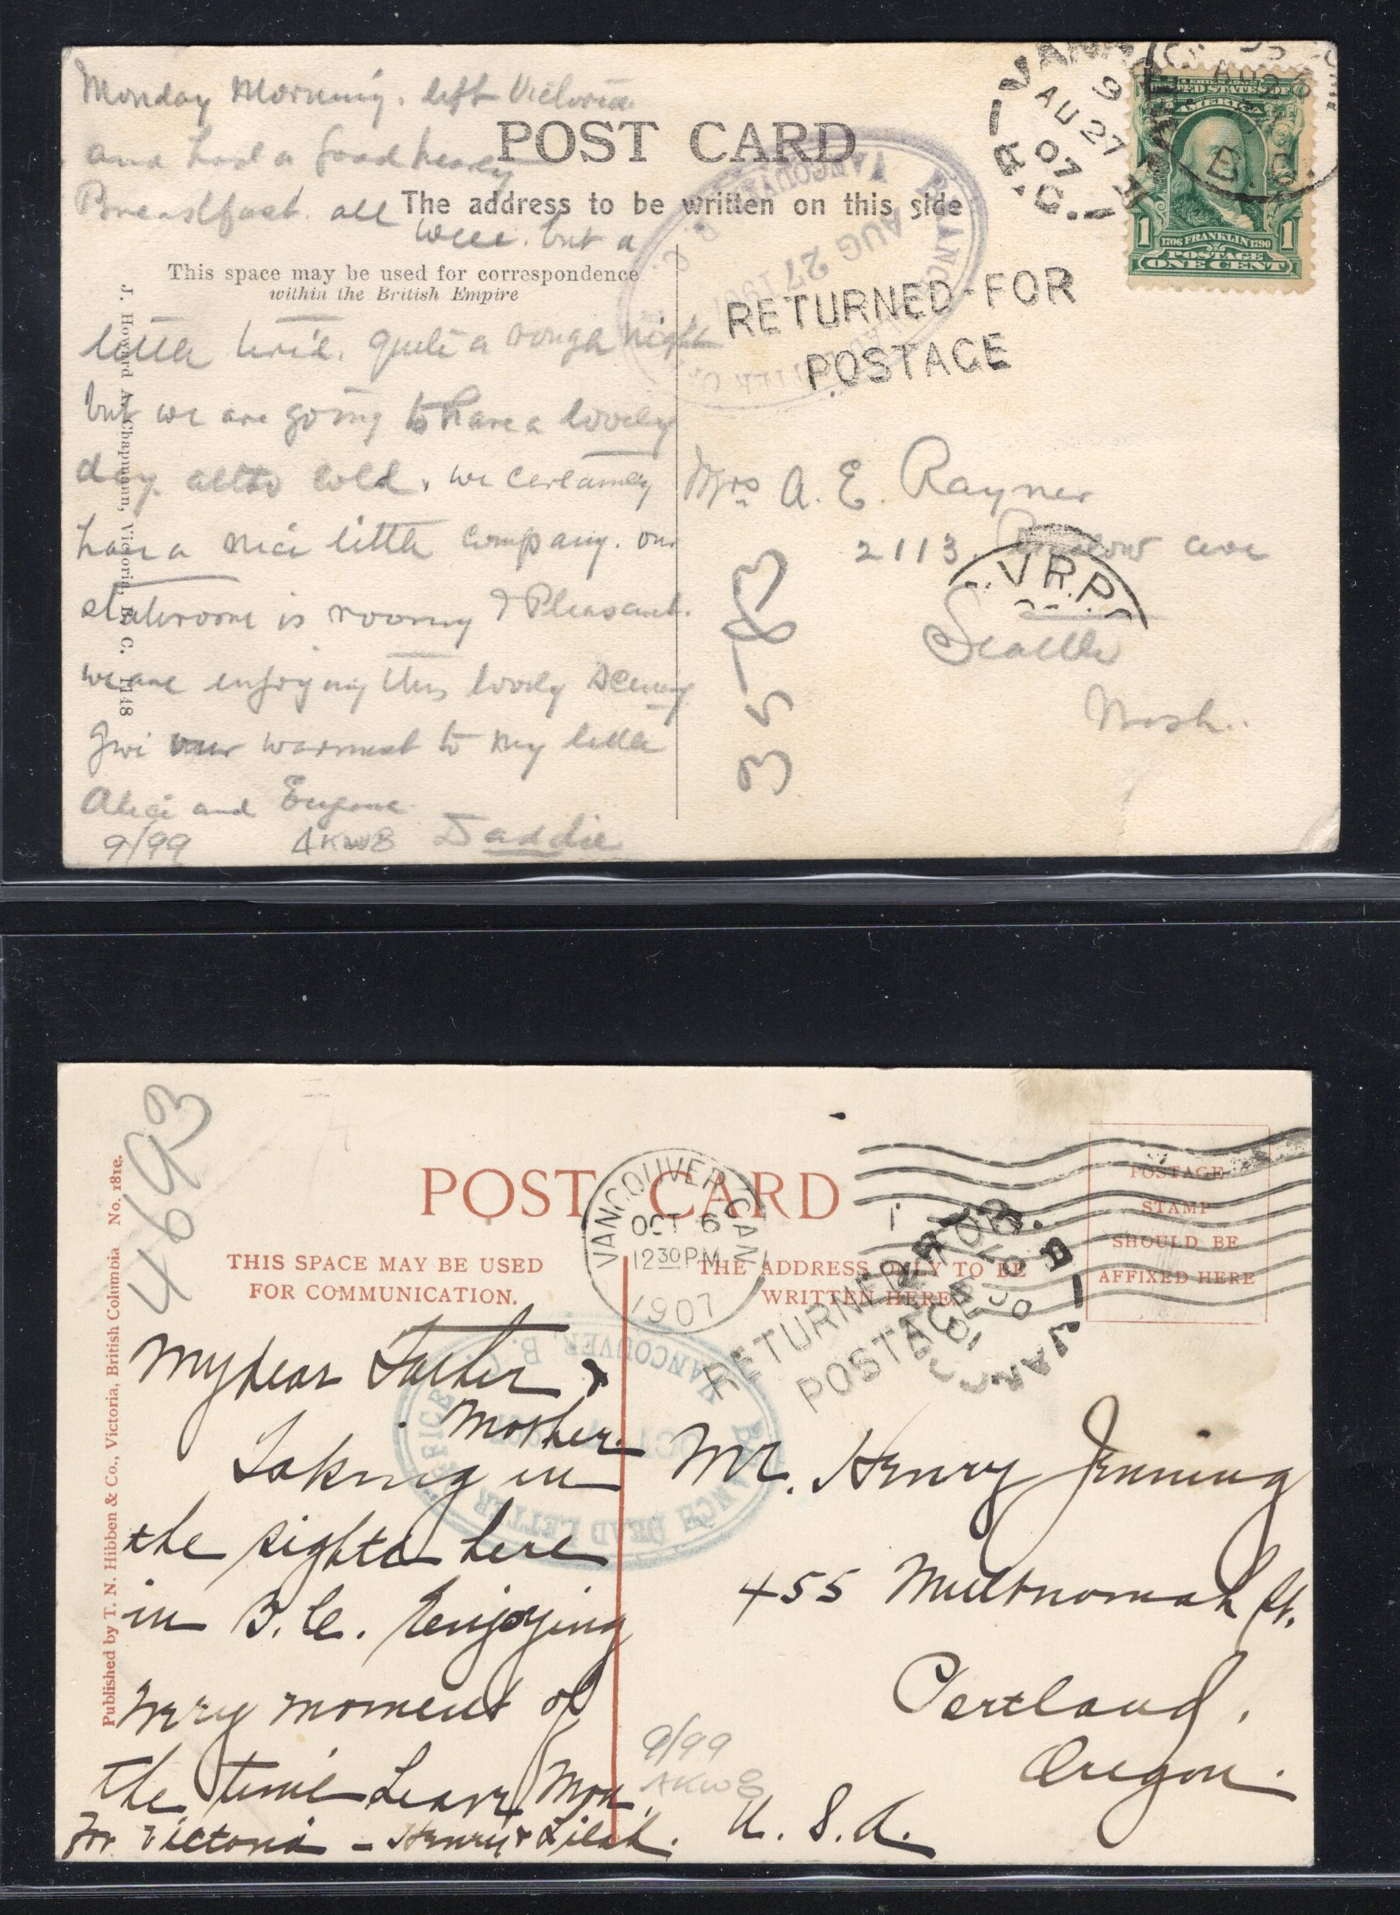 Monday Morning. left Victoria
and had a good hearty
Breastfast. all
well. but a
POST CARD
The address to be written on this side
This space may be used for correspondence
within the British Empire
little tired. quite a rough night
but we are going to have a lovely
day. altho cold. we certainly
have a nice little company. our
stateroom is roomy & Pleasant.
we are enjoying this lovely scenery
Give our warmest to my little
Alice and Eugene.
Daddie
9/99
AKWB
J. Howard A. Chapmann, Victoria, B. C. 1148
VANCOUVER
9
AU 27
07
B.C.
B.C.
UNITED STATES OF
AMERICA
1706 FRANKLIN 1790
POSTAGE
1 1
ONE CENT
BRANCH DEAD LETTER OFFICE
AUG 27 1907
VANCOUVER, B. C.
RETURNED FOR
POSTAGE
Mrs A. E. Rayner
2113. ave
Seattle
Wash.
V.R.P.
4693
Published by T. N. Hibben & Co., Victoria, British Columbia No. 181e.
POST CARD
THIS SPACE MAY BE USED
FOR COMMUNICATION.
THE ADDRESS ONLY TO BE
WRITTEN HERE.
VANCOUVER, CAN.
OCT 6
12 30 PM
1907
RETURNED FOR
POSTAGE
VANCOUVER
B.C.
POSTAGE
STAMP
SHOULD BE
AFFIXED HERE
BRANCH DEAD LETTER OFFICE
OCT
VANCOUVER, B. C.
My dear Father &
Mother.
Taking in
the sights here
in B. C. Enjoying
every moment of
the time Leave Mon.
For Victoria - Henry & Lilah.
Mr. Henry Jenning
455 Multnomah St.
Portland,
Oregon.
U. S. A.
9/99
AKWB